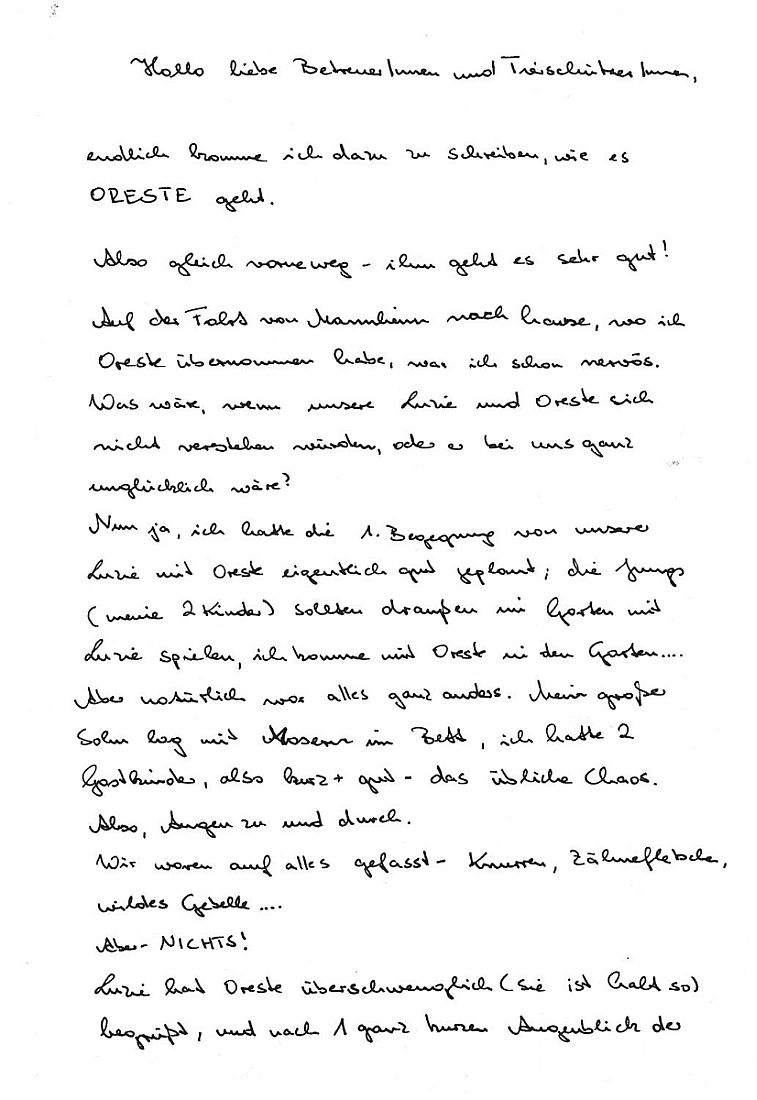 Hallo liebe BetreuerInnen und TierschützerInnen,
endlich komme ich dazu zu schreiben, wie es
ORESTE geht.
Also gleich vorneweg - ihm geht es sehr gut!
Auf der Fahrt von Mannheim nach hause, wo ich
Oreste übernommen habe, war ich schon nervös.
Was wäre, wenn unsere Luzie und Oreste sich
nicht verstehen würden, oder er bei uns ganz
unglücklich wäre?
Nun ja, ich hatte die 1. Begegnung von unserer
Luzie mit Oreste eigentlich gut geplant; die Jungs
(meine 2 Kinder) sollten draußen im Garten mit
Luzie spielen, ich komme mit Oreste in den Garten....
Aber natürlich war alles ganz anders. Mein großer
Sohn lag mit Masern im Bett, ich hatte 2
Gastkinder, also kurz + gut - das übliche Chaos.
Also, Augen zu und durch.
Wir waren auf alles gefasst - Knurren, Zähnefletschen,
wildes Gebelle ....
Aber - NICHTS!
Luzie hat Oreste überschwenglich (sie ist halt so)
begrüßt, und nach 1 ganz kurzen Augenblick der